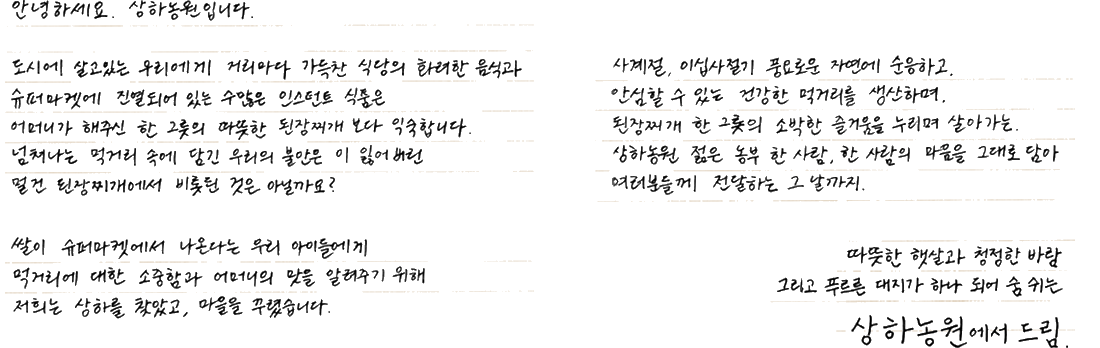 안녕하세요. 상하농원입니다.
도시에 살고있는 우리에게 거리마다 가득찬 식당의 화려한 음식과
슈퍼마켓에 진열되어 있는 수많은 인스턴트 식품은
어머니가 해주신 한 그릇의 따뜻한 된장찌개 보다 익숙합니다.
넘쳐나는 먹거리 속에 담긴 우리의 불안은 이 잃어버린
멀건 된장찌개에서 비롯된 것은 아닐까요?
쌀이 슈퍼마켓에서 나온다는 우리 아이들에게
먹거리에 대한 소중함과 어머니의 맛을 알려주기 위해
저희는 상하를 찾았고, 마을을 꾸렸습니다.
사계절, 이십사절기 풍요로운 자연에 순응하고,
안심할 수 있는 건강한 먹거리를 생산하며,
된장찌개 한 그릇의 소박한 즐거움을 누리며 살아가는.
상하농원 젊은 농부 한 사람, 한 사람의 마음을 그대로 담아
여러분들께 전달하는 그 날까지.
따뜻한 햇살과 청정한 바람
그리고 푸르른 대지가 하나 되어 숨 쉬는
상하농원에서 드림.